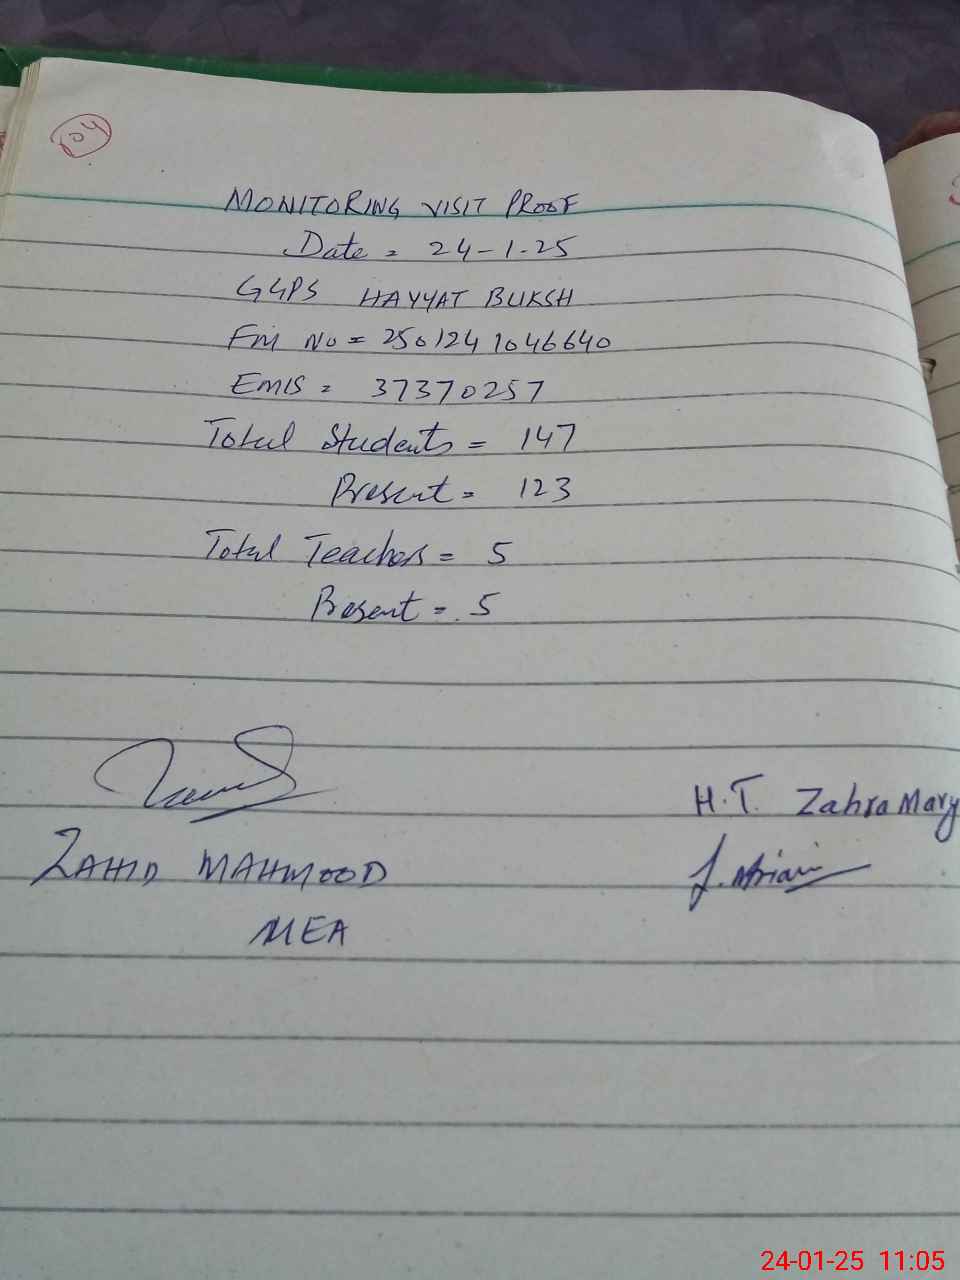 04
MONITORING VISIT PROOF
Date = 24-1-25
GGPS HAYYAT BUKSH
Fm No = 2501241046640
EMIS = 37370257
Total Students = 147
Present = 123
Total Teachers = 5
Present = 5
ZAHID MAHMOOD
MEA
H.T. Zahra Mary
24-01-25 11:05